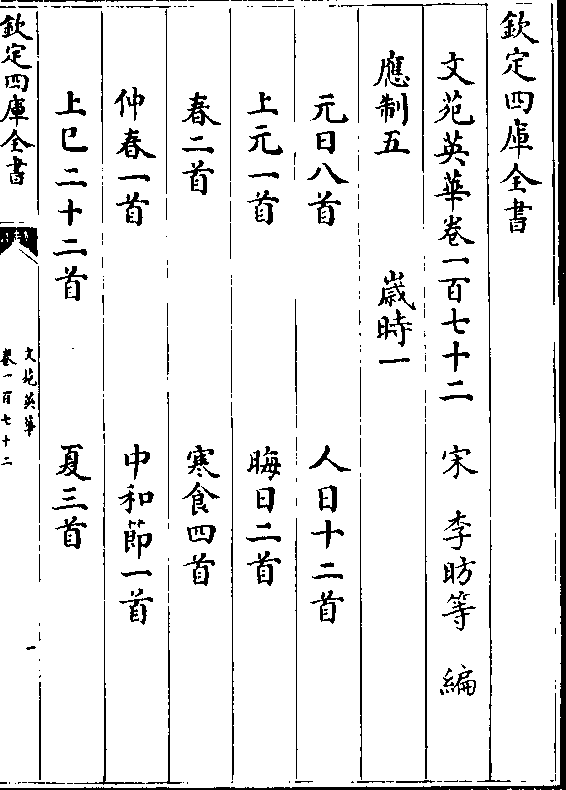 欽定四庫全書
文苑英華卷一百七十二　宋　李昉等　編
應制五　歲時一
元日八首　人日十二首
上元一首　晦日二首
春二首　寒食四首
仲春一首　中和節一首
上巳二十二首　夏三首
欽定四庫全書
文苑英華
卷一百七十二
一